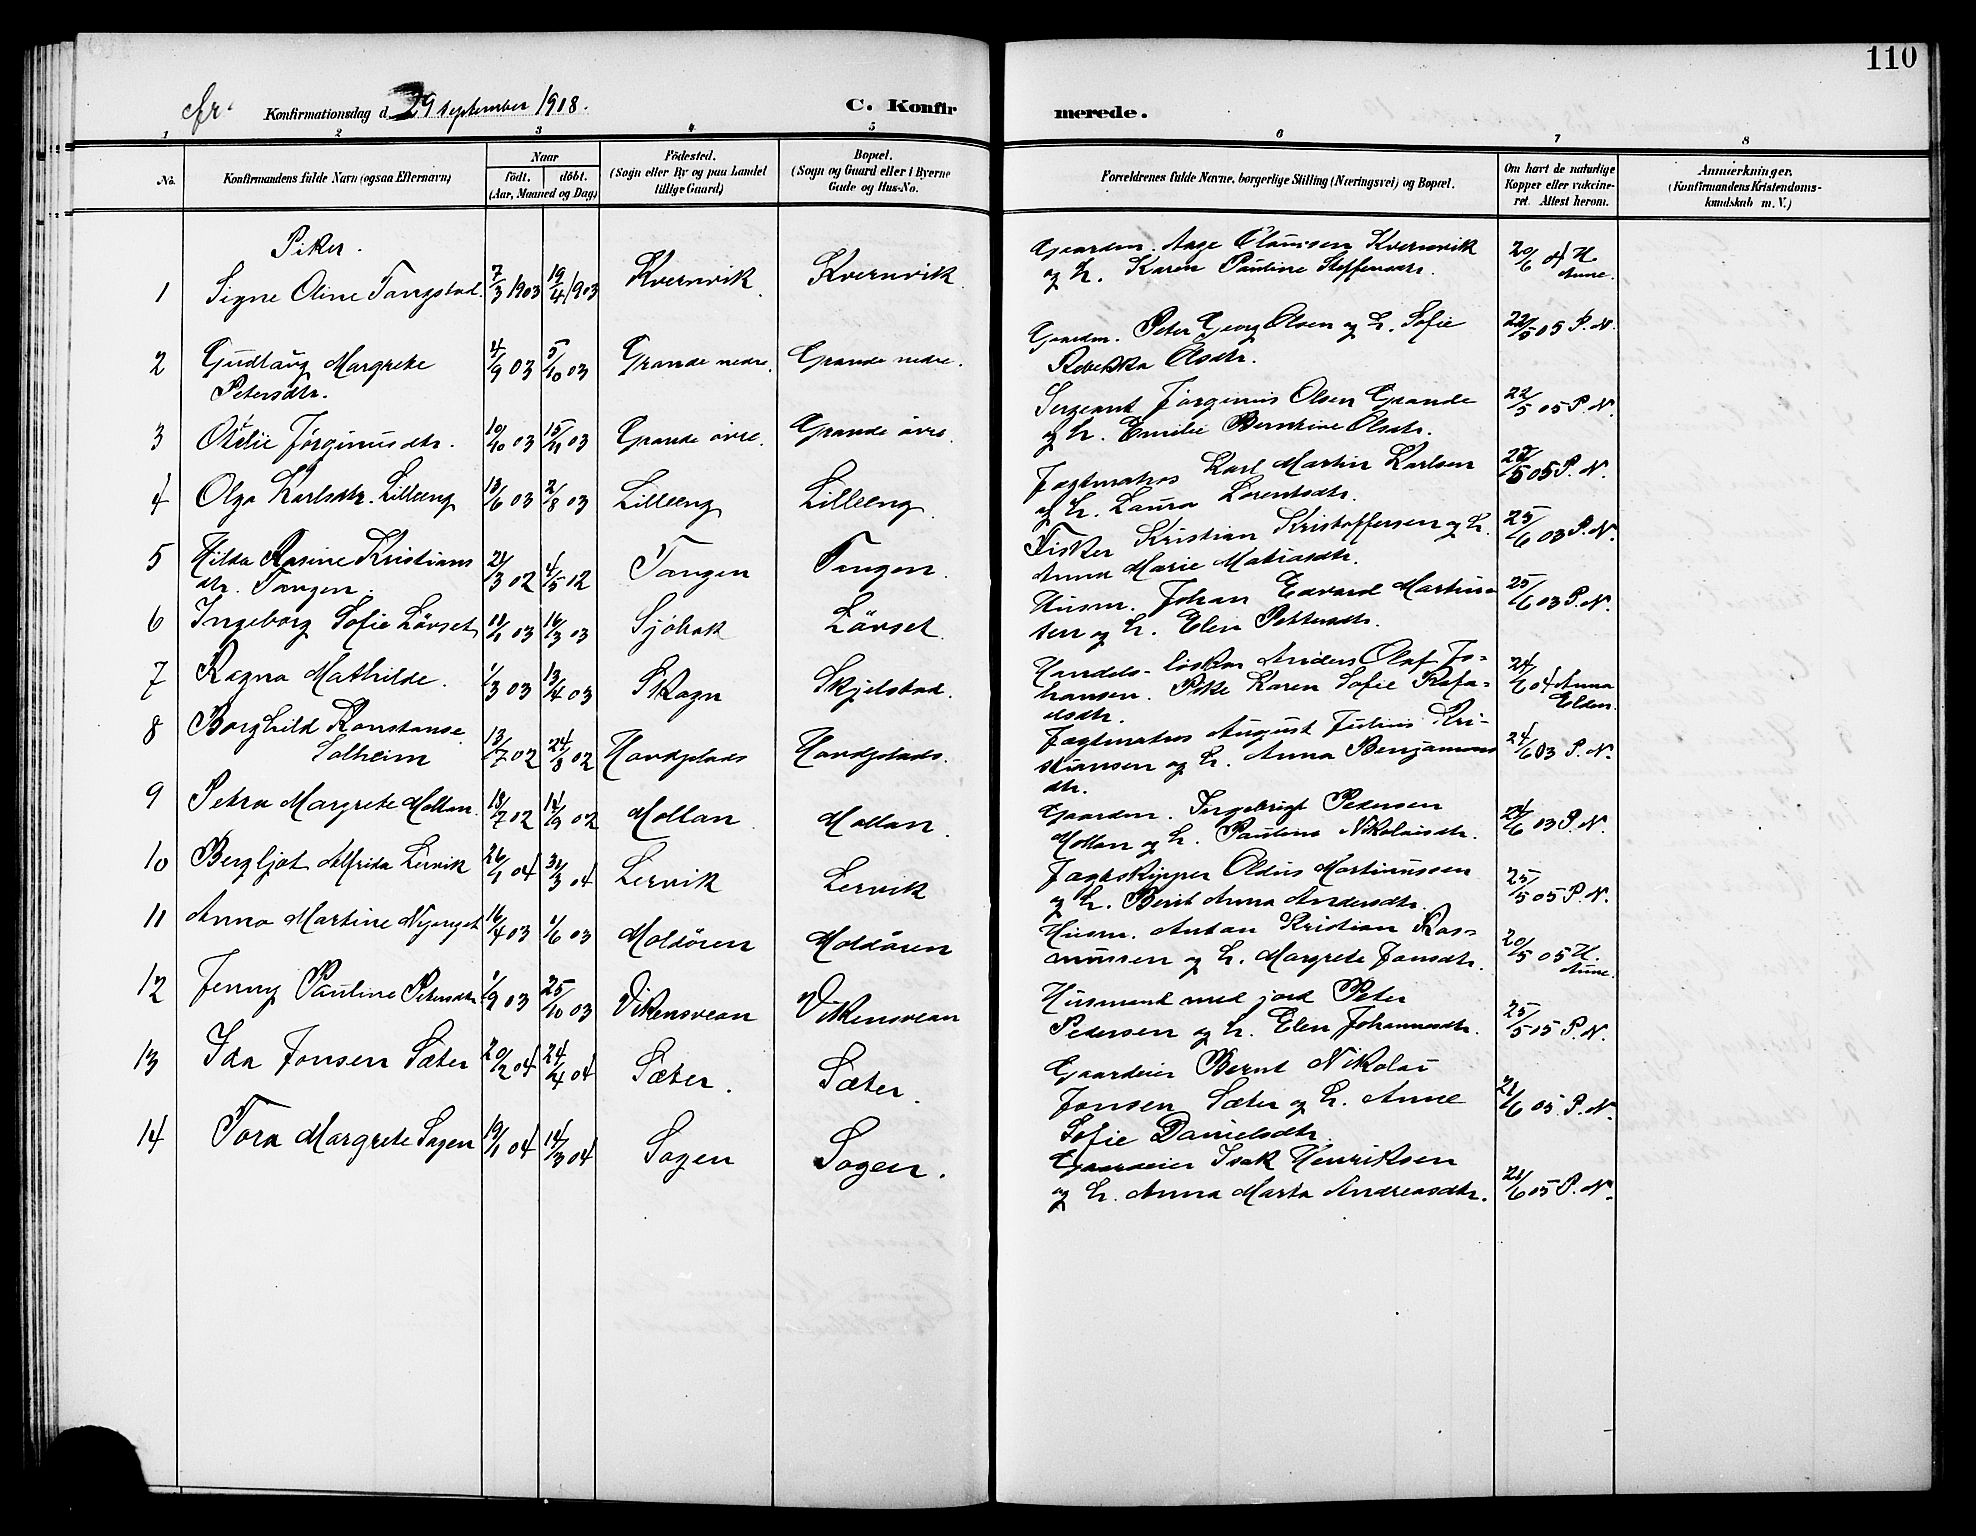 110
Konfirmationsdag d. 29 September 1918.
C. Konfirmerede.
1 2 3 4 5 6 7 8
No.
Konfirmandens fulde Navn (ogsaa Efternavn)
Naar
födt. döbt.
(Aar, Maaned og Dag)
Födested.
(Sogn eller By og paa Landet
tillige Gaard)
Bopæl.
(Sogn og Gaard eller i Byerne
Gade og Hus-No.
Forældrenes fulde Navne, borgerlige Stilling (Næringsvei) og Bopæl.
Om havt de naturlige
Kopper eller vakcine-
ret. Attest herom.
Anmærkninger.
(Konfirmandens Kristendoms-
kundskab m. V.)
Piker.
1 Signe Oline Tangstad 7/3 1903 19/4 1903 Kvernvik Kvernvik
Gaardm. Aage Olausen Kvernvik
og h. Karen Pauline Steffensdtr.
20/6 04 H. Aune.
2 Gudlaug Margrete
Petersdtr.
4/9 03 5/10 03 Grande nedre. Grande nedre.
Gaardm. Peter Georg Olsen og h. Sofie
Rebekka Olsdtr.
22/5 05 P. N.
3 Otelie Jörginusdtr. 10/10 03 15/11 03 Grande övre. Grande övre.
Sergeant Jörginus Olsen Grande
og h. Emilie Berntine Olsdtr.
22/5 05 P. N.
4 Olga Karlsdtr. Lilleeng 18/6 03 2/8 03 Lilleeng Lilleeng
Jægtmatros Karl Martin Karlsen
og h. Laura Lorentsdtr.
22/5 05 P. N.
5 Hilda Rasine Kristians
dtr. Tangen.
21/3 02 4/5 02 Tangen Tangen
Fisker Kristian Kristoffersen og h.
Anna Marie Matiasdtr.
25/6 03 P. N.
6 Ingeborg Sofie Lövset 18/1 03 16/3 03 Sjöbak Lövset
Husm. Johan Edvard Martin-
sen og h. Elen Pettersdtr.
25/6 03 P. N.
7 Ragna Mathilde. 1/3 03 13/4 03 Skogn Skjelstad.
Handels- Anders Olaf Jo-
hansen. Pike Karen Sofie Rafa-
elsdtr.
24/6 04 Anna
Elden.
8 Borghild Konstanse
Solheim
13/7 02 24/8 02 Havdplads Havdplads.
Jægtmatros August Julius Kri-
stiansen og h. Anna Benjamins
dtr.
24/6 03 P. N.
9 Petra Margrete Mollan 18/7 02 14/9 02 Mollan Mollan.
Gaardm. Ingebrigt Pedersen
Mollan og h. Pauline Nikolaisdtr.
24/6 03 P. N.
10 Bergljot Alfrida Lervik 26/1 04 31/3 04 Lervik Lervik
Jægtskipper Oldus Martinussen
og h. Berit Anna Andersdtr.
25/5 05 P. N.
11 Anna Martine Nyenget 16/4 03 1/6 03 Moldören Moldören
Husm. Anton Kristian Ras-
mussen og h. Margrete Jonsdtr.
20/5 05 H.
Aune.
12 Jenny Pauline Petersdtr. 1/9 03 25/10 03 Vikensvean Vikensvean
Husmand med jord Peter
Pedersen og h. Elen Johannesdtr.
25/5 05 P. N.
13 Ida Jonsen Sæter 20/2 04 24/4 04 Sæter. Sæter.
Gaardeier Bernt Nikolai
Jonsen Sæter og h. Anne
Sofie Danielsdtr.
21/6 05. P. N.
14 Tora Margrete Sagen 19/1 04 14/3 04 Sagen Sagen.
Gaardeier Isak Henriksen
og h. Anna Marta Andreasdtr.
21/6 05 P. N.